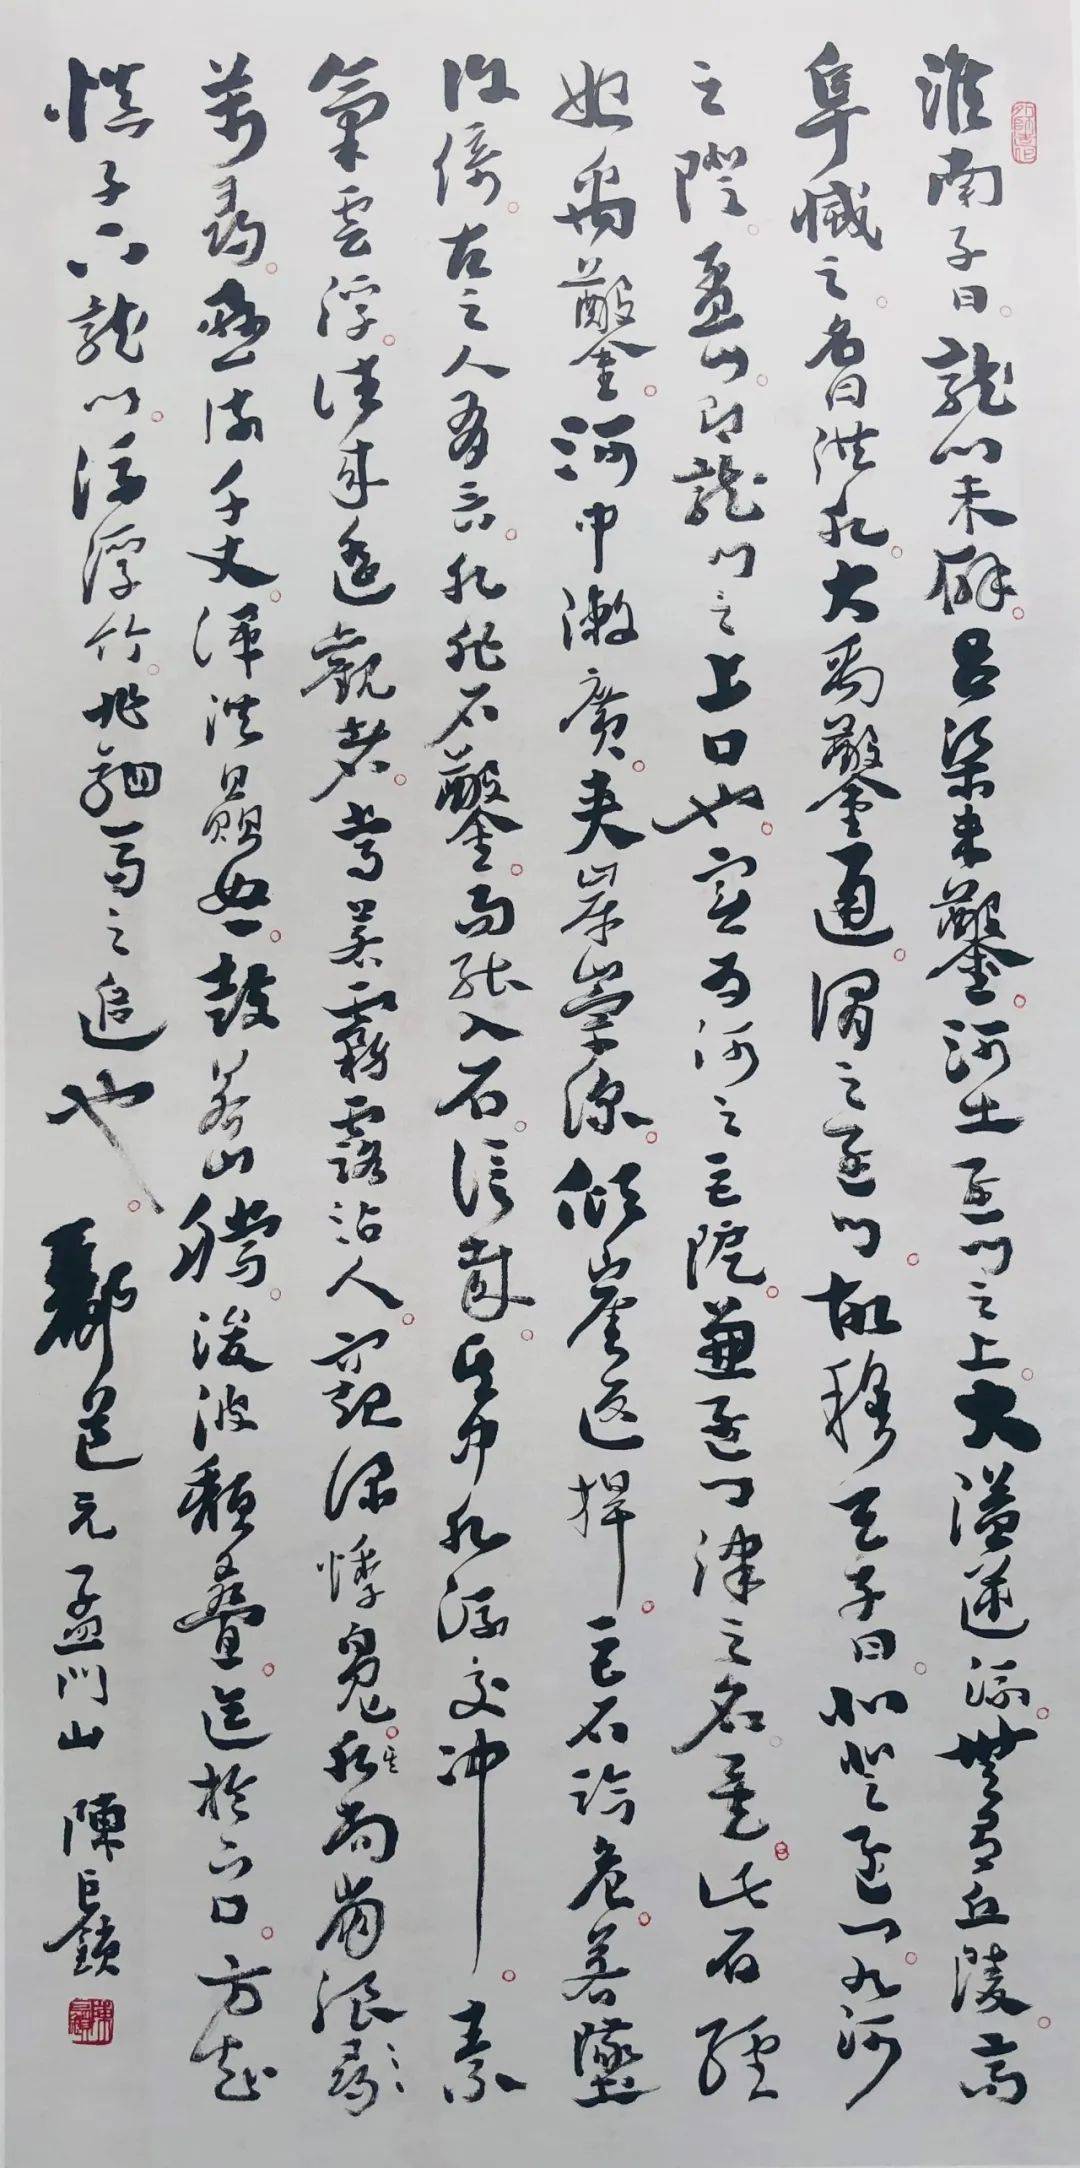 外師造化
淮南子曰龍門未辟呂梁未鑿河出孟門之上大溢逆流無有丘陵高
阜滅之名曰洪水大禹鑿通謂之孟門故穆天子曰北登孟門九河
之隥孟山即龍門之上口也實為河之巨阸兼孟門津之名矣此石經
始禹鑿河中漱廣夾岸崇深傾崖返捍巨石臨危若墜
復倚古之人有言水非石鑿而能入石信哉其中水流交冲素
氣雲浮往來遙觀者常若霧露沾人窺深悸魄其水尚崩浪尋
萬尋懸流千丈渾洪贔怒鼓若山騰浚波頹疊迄於下口方知
慎子下龍門流浮竹非駟馬之追也 酈道元孟門山 陳巨鎖